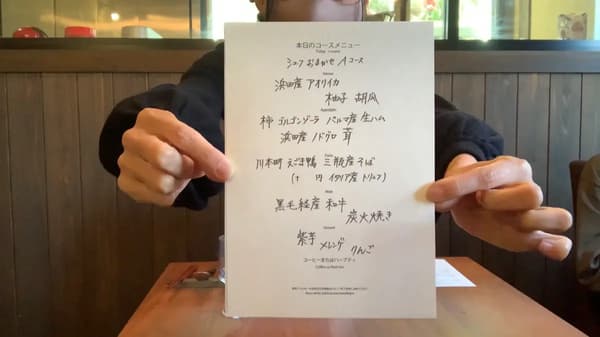 本日のコースメニュー
シェフおまかせ Aコース
浜田産 アオリイカ
柚子 胡瓜
柿 ゴルゴンゾーラ パルマ産 生ハム
浜田産 ノドグロ 茸
川本町 えごま鴨 三瓶産そば
円 イタリア産 トリュフ)
黒毛経産 和牛
炭火焼き
紫芋 メレンゲ りんご
コーヒーまたはハーブティ